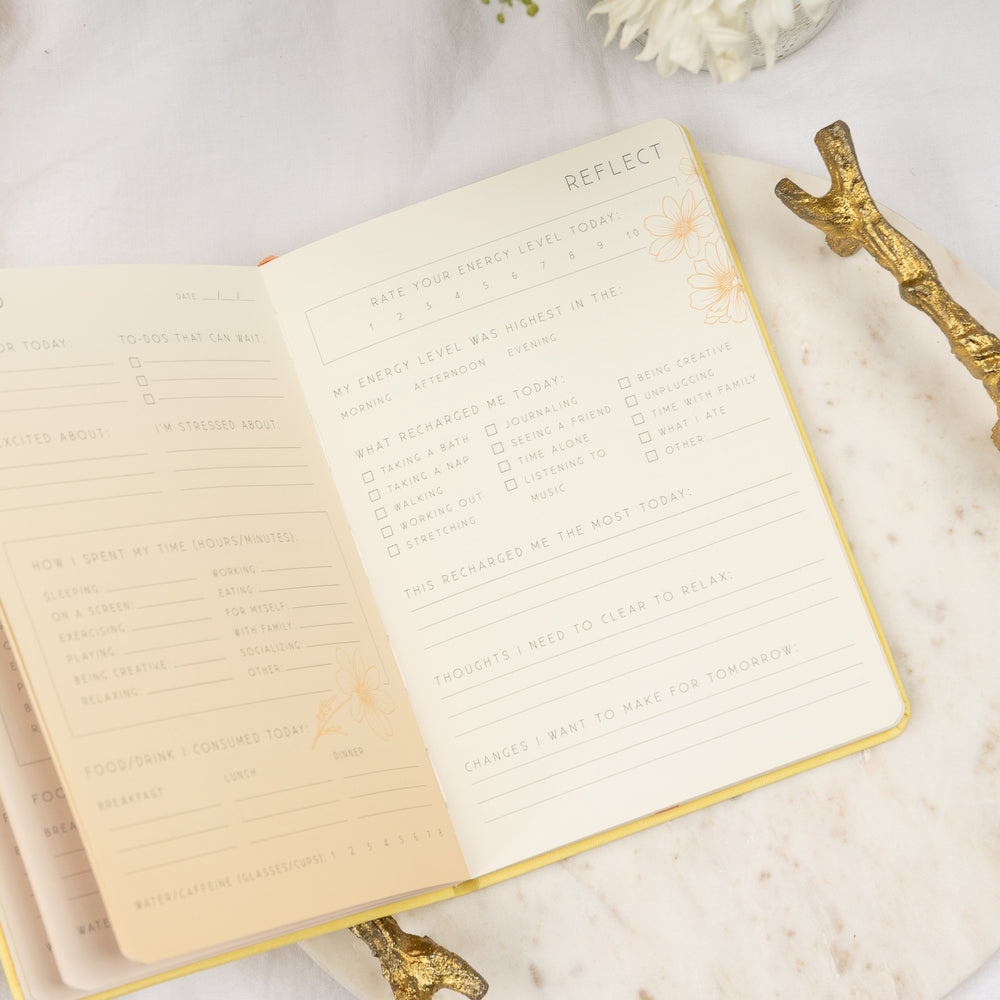 DATE __/__/__
OR TODAY:
TO-DOS THAT CAN WAIT:
EXCITED ABOUT:
I'M STRESSED ABOUT:
HOW I SPENT MY TIME (HOURS/MINUTES):
SLEEPING:
ON A SCREEN:
EXERCISING:
PLAYING:
BEING CREATIVE:
RELAXING:
WORKING:
EATING:
FOR MYSELF:
WITH FAMILY:
SOCIALIZING:
OTHER:
FOOD/DRINK I CONSUMED TODAY:
BREAKFAST LUNCH DINNER
WATER/CAFFEINE (GLASSES/CUPS): 1 2 3 4 5 6 7 8
REFLECT
RATE YOUR ENERGY LEVEL TODAY:
1 2 3 4 5 6 7 8 9 10
MY ENERGY LEVEL WAS HIGHEST IN THE:
MORNING AFTERNOON EVENING
WHAT RECHARGED ME TODAY:
TAKING A BATH
TAKING A NAP
WALKING
WORKING OUT
STRETCHING
JOURNALING
SEEING A FRIEND
TIME ALONE
LISTENING TO
MUSIC
BEING CREATIVE
UNPLUGGING
TIME WITH FAMILY
WHAT I ATE
OTHER:
THIS RECHARGED ME THE MOST TODAY:
THOUGHTS I NEED TO CLEAR TO RELAX:
CHANGES I WANT TO MAKE FOR TOMORROW: